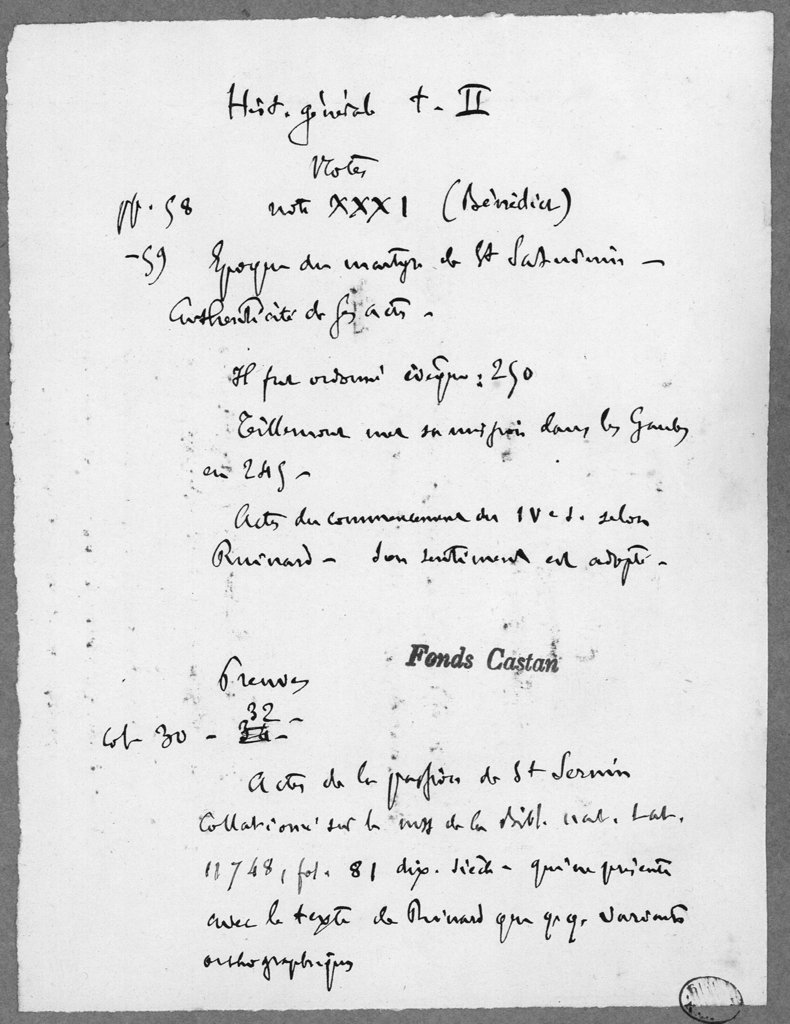 Hist. générale t. II
Notes
pp. 58 note XXXI (Bénédict)
-59 Epoque du martyre de St Saturnin -
Authenticité de ses actes -
Il fut ordonné évêque : 250
Tillemont met sa mission dans les Gaules
en 245 -
Actes du commencement du IVe s. selon
Ruinard - Son sentiment est adopté -
Fonds Castan
Preuves
32 -
col- 30 -
Actes de la passion de St Sernin
Collationné sur le mss de la Bibl. nat. Lat.
11748, fol. 81 dix. siècle - qui ne présente
avec le texte de Ruinard que q.q. variantes
orthographiques